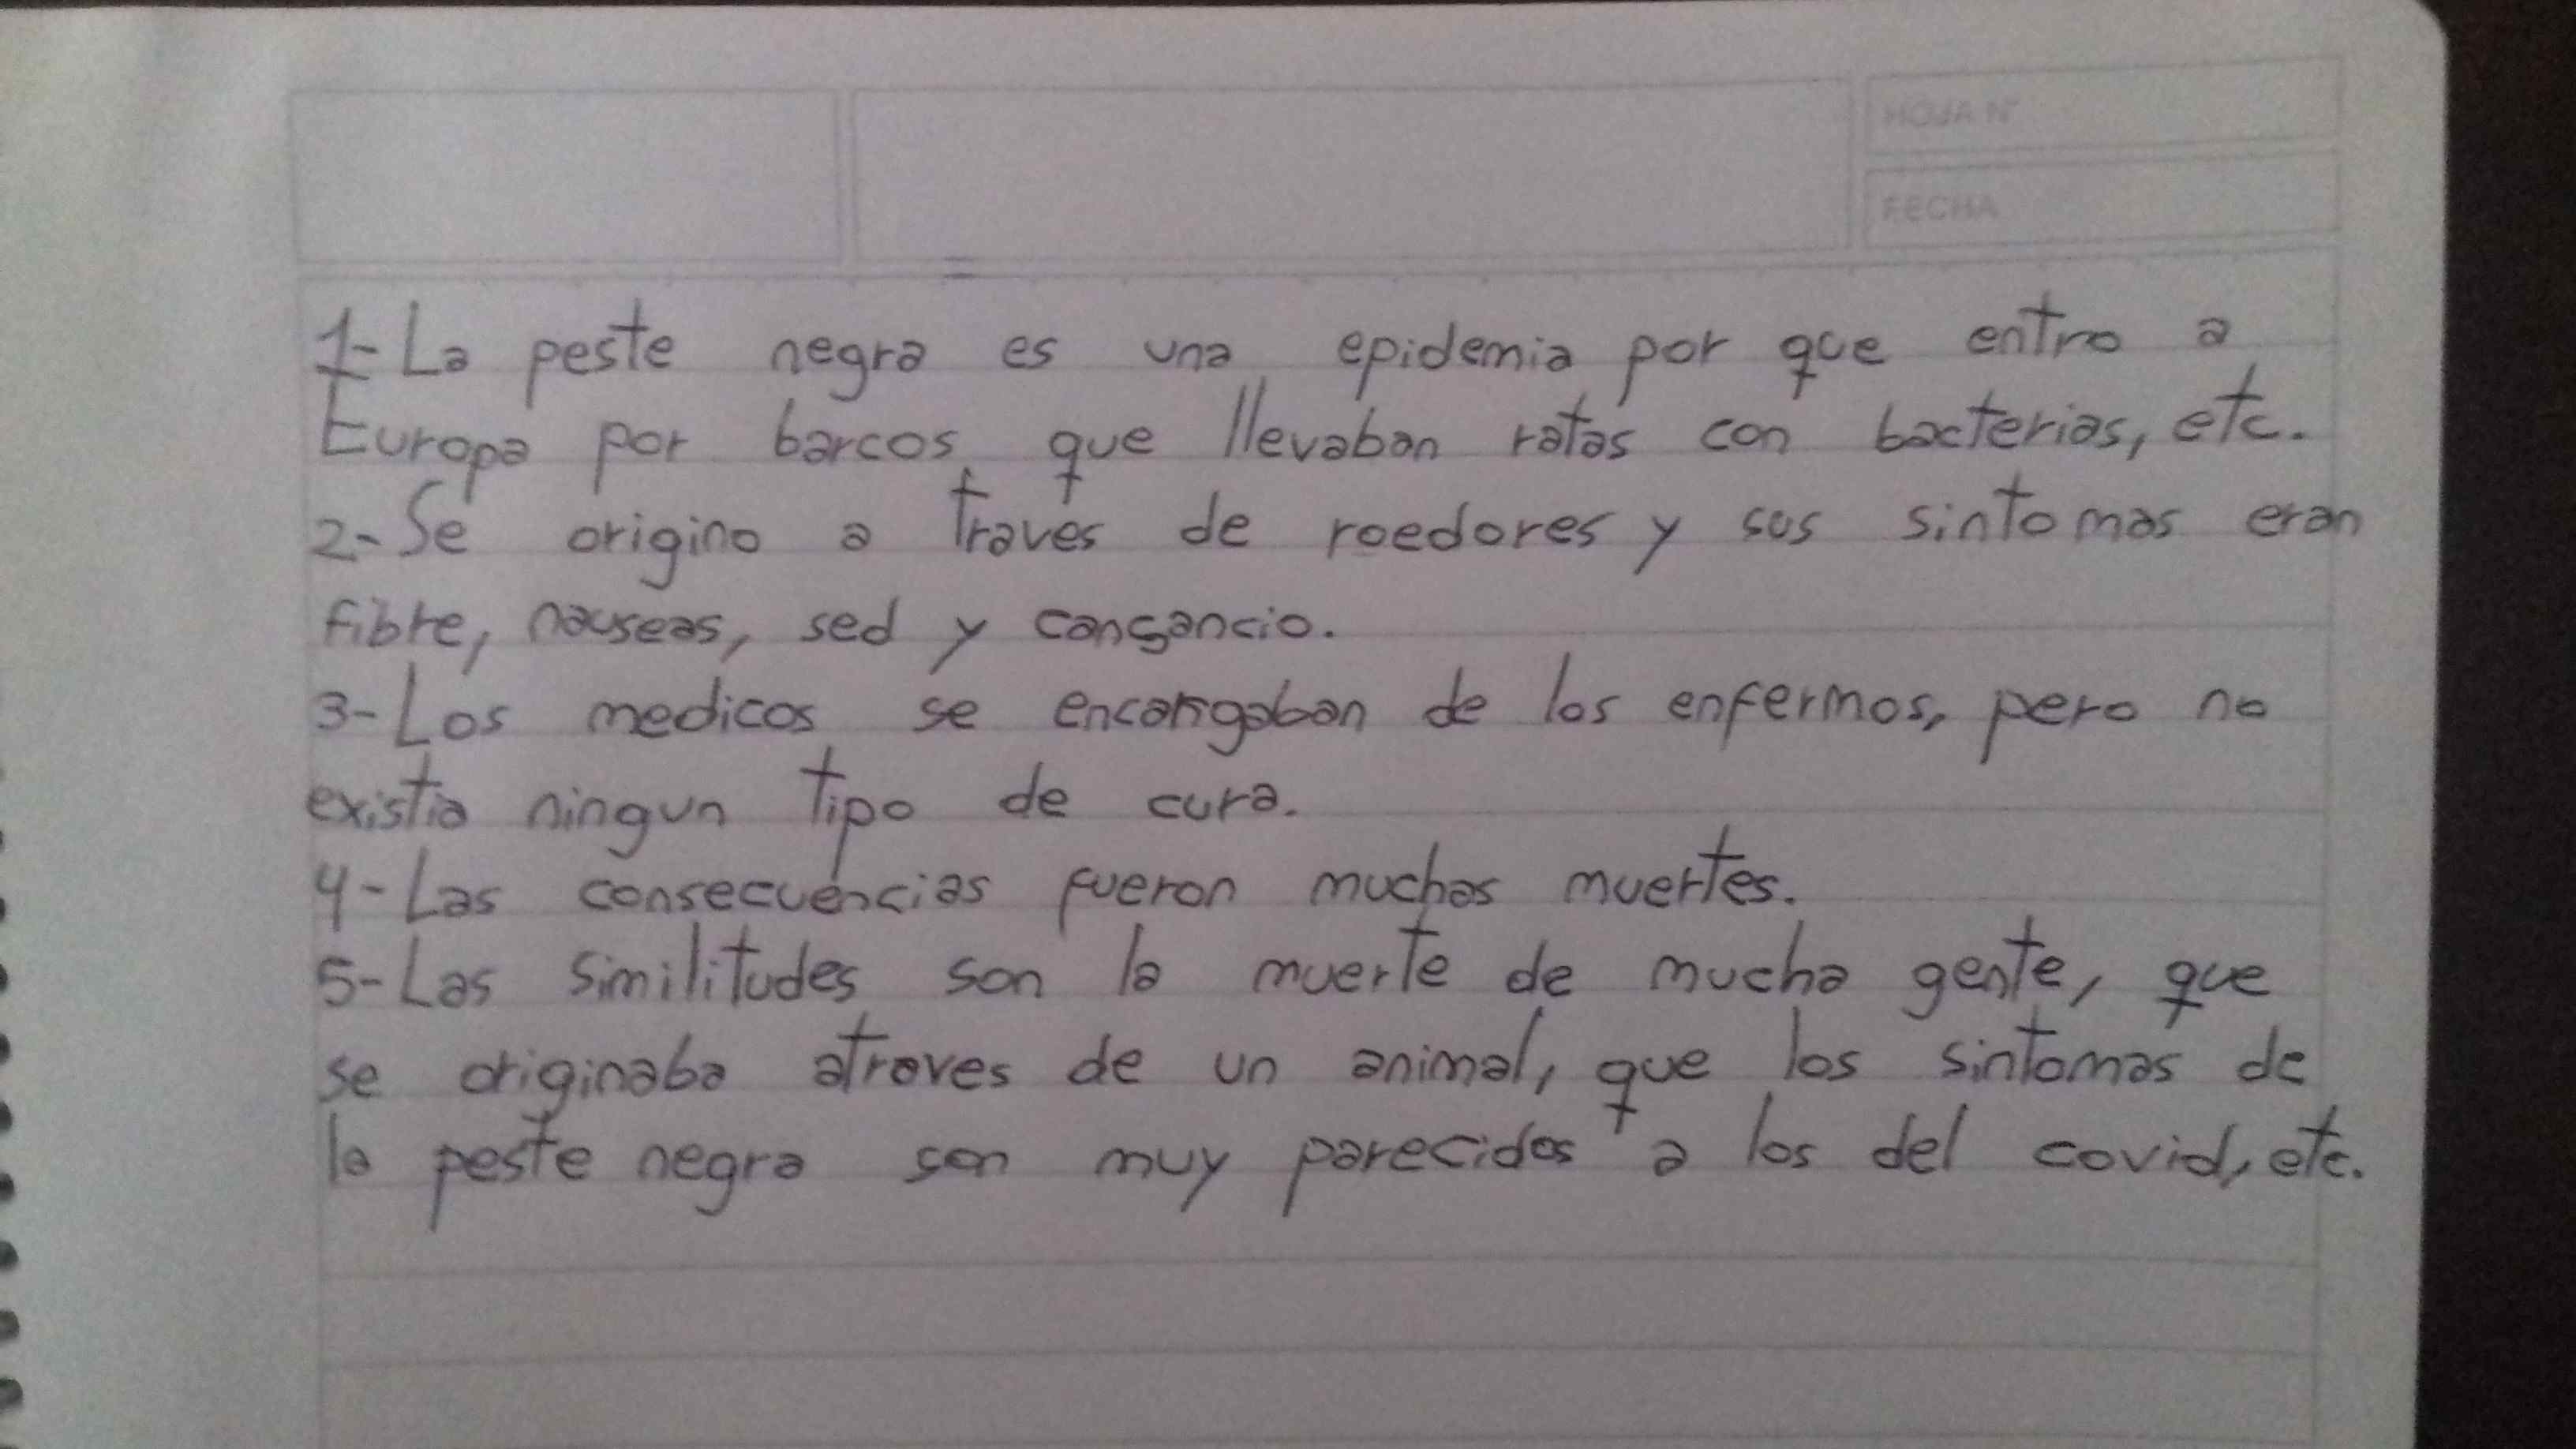 HOJA N°
FECHA
1- La peste negra es una epidemia por que entro a
Europa por barcos que llevaban ratas con bacterias, etc.
2- Se origino a traves de roedores y sus sintomas eran
fibre, nauseas, sed y cansancio.
3- Los medicos se encargaban de los enfermos, pero no
existia ningun tipo de cura.
4- Las consecuencias fueron muchas muertes.
5- Las similitudes son la muerte de mucha gente, que
se originaba atraves de un animal, que los sintomas de
la peste negra son muy parecidos a los del covid, etc.